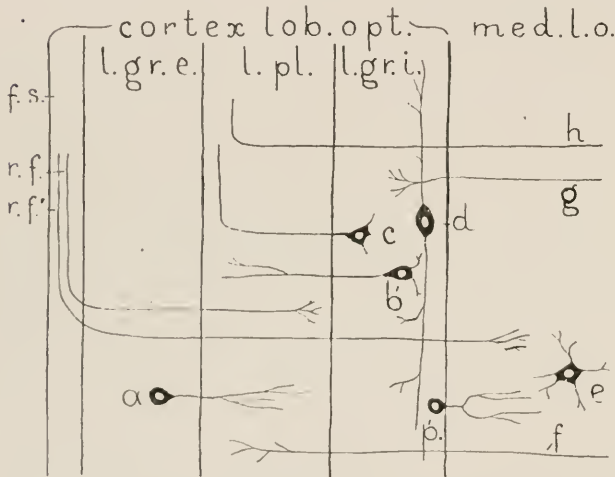 cortex lob.opt. med.l.o.
l.gr.e. l.pl. l.gr.i.
f.s.
h
r.f.
g
r.f.'
d
c
b'
a
e
b.
f